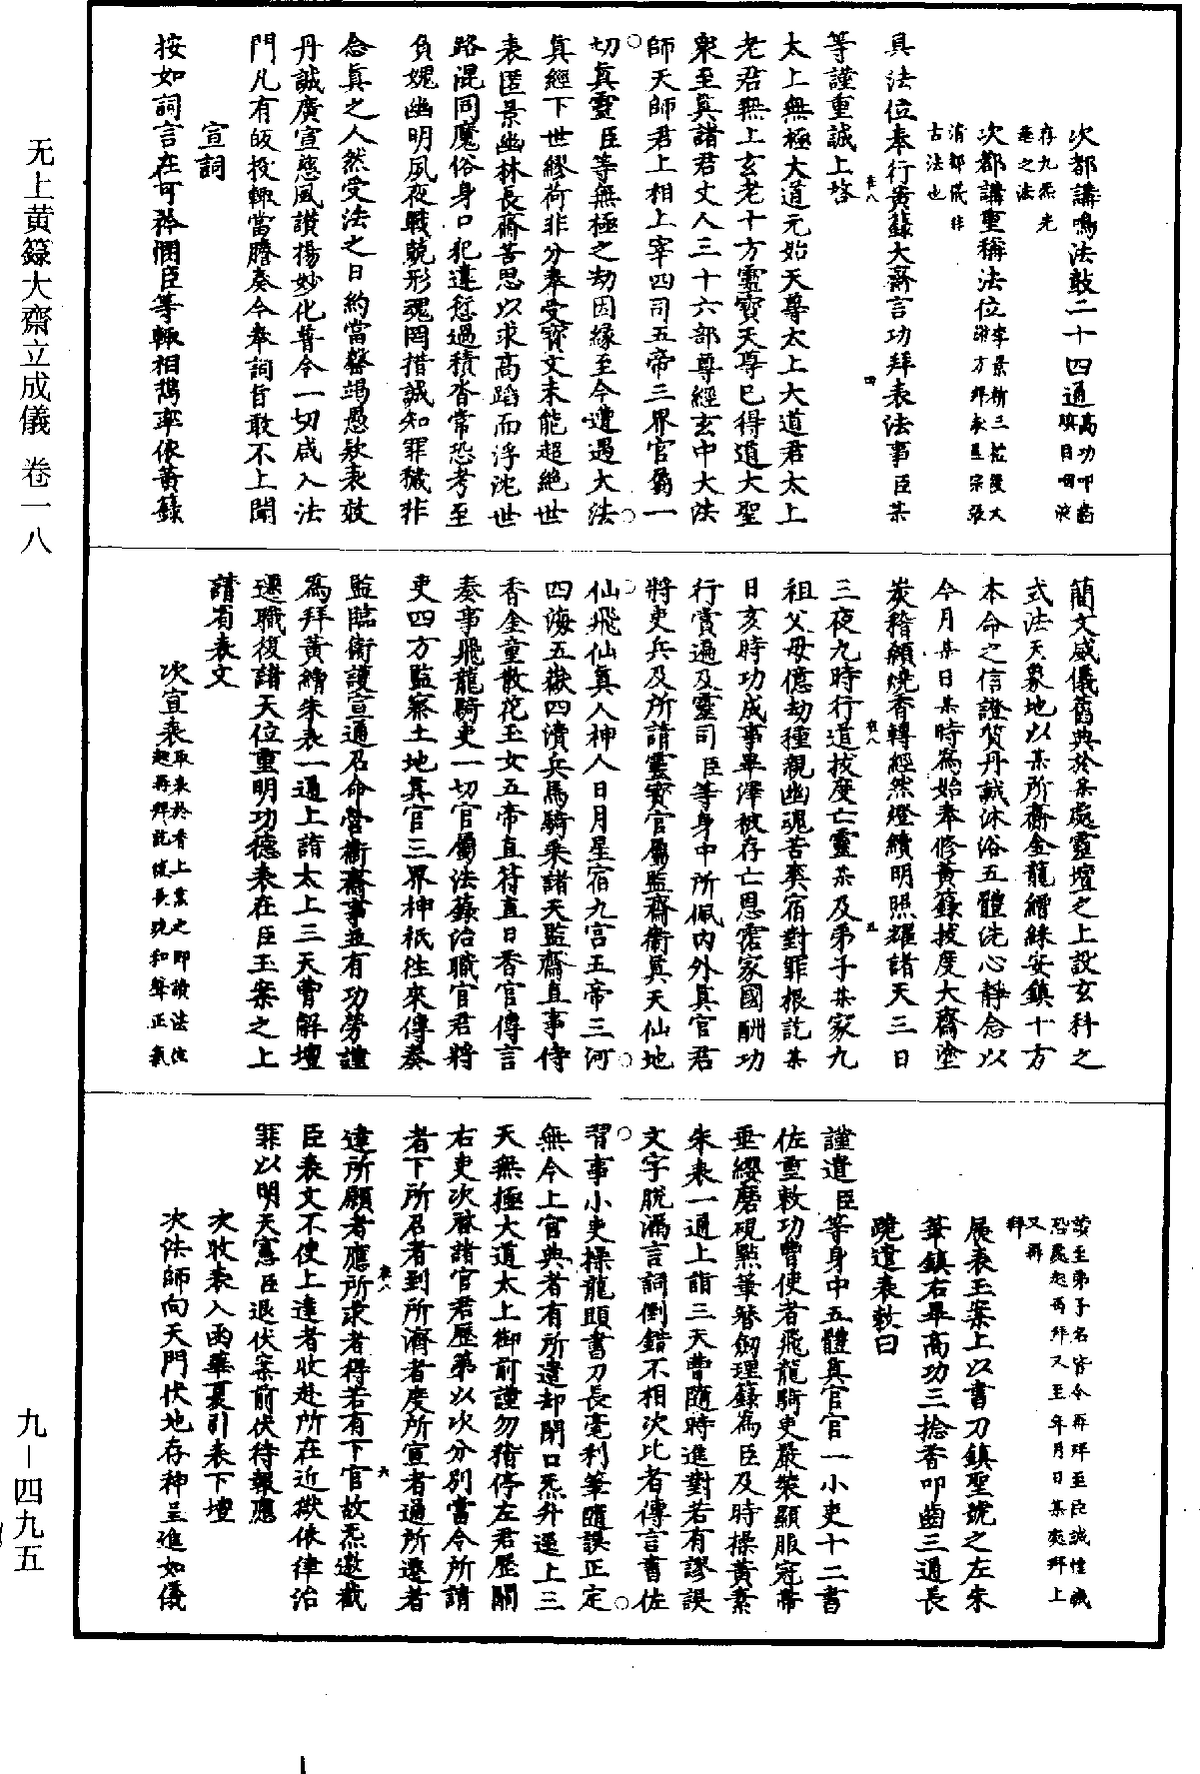 次都講鳴法鼓二十四通高功叩齒
瞋目咽液
存九炁光
次都講重稱法位
消都儀非
古法也
具法位奉行黃籙大齋言功拜表法事臣某
等謹重誠上啓
太上無極大道元始天尊太上大道君太上
老君無上玄老十方靈寶天尊已得道大聖
衆至真諸君丈人三十六部尊經玄中大法
師天師君上相上宰四司五帝三界官屬一
切真靈臣等無極之劫因緣至今遭遇大法
真經下世繆荷非分奉受寶文未能超絕世
表匿景幽林長齋苦思以求高蹈而浮沈世
路混同魔俗身口犯違愆過積沓常恐考至
負媿幽明夙夜戰兢形魂罔措誠知罪穢非
念真之人然受法之日約當罄竭愚欵表效
丹誠廣宣慈風讚揚妙化普令一切咸入法
門凡有皈投輒當謄奏今奉詞旨敢不上聞
宣詞
按如詞言在可矜憫臣等輒相携率依黃籙
簡文威儀舊典於某處靈壇之上設玄科之
式法天象地以某所齋金龍繒綵安鎮十方
本命之信證質丹誠沐浴五體洗心靜念以
今月某日某時為始奉修黃籙拔度大齋塗
炭稽顙燒香轉經然燈續明照耀諸天三日
三夜九時行道拔度亡靈某及弟子某家九
祖父母億劫種親幽魂苦爽宿對罪根訖某
日亥時功成事畢澤被存亡恩霑家國酬功
行賞遍及靈司臣等身中所佩內外真官君
將吏兵及所請靈寶官屬監齋衛真天仙地
仙飛仙真人神人日月星宿九宮五帝三河
四海五嶽四瀆兵馬騎乘諸天監齋直事侍
香金童散花玉女五帝直符直日香官傳言
奏事飛龍騎吏一切官屬法籙治職官君將
吏四方監察土地真官三界神祇徃來傳奏
監臨衛護宣通召命營衛齋事並有功勞謹
為拜黃繒朱表一通上詣太上三天曹解壇
遷職復諸天位重明功德表在臣玉案之上
請省表文
次宣表取表於香上熏之即讀法位
起再拜訖復長跪和聲正氣
讀至弟子名皆令再拜至臣誠惶誠
恐屬起再拜又至年月日某處拜上
又再
拜
展表玉案上以書刀鎮聖號之左朱
筆鎮右畢高功三捻香叩齒三通長
跪遣表敕曰
謹遣臣等身中五體真官官一小吏十二書
佐重敕功曹使者飛龍騎吏嚴裝顯服冠帶
垂纓磨硯點筆簪劒理籙為臣及時操黃素
朱表一通上詣三天曹隨時進對若有謬誤
文字脫漏言詞倒錯不相次比者傳言書佐
習事小吏操龍頭書刀長毫利筆隨誤正定
無令上官典者有所遣却閉口炁升遥上三
天無極大道太上御前謹勿稽停左君歷關
右吏次啓諸官君歷第以次分別當令所請
者下所召者到所濟者度所宣者通所遷者
達所願者應所求者得若有下官故炁邀截
臣表文不使上達者收赴所在近獄依律治
罪以明天憲臣退伏案前伏待報應
次收表入函華夏引表下壇
次法師向天門伏地存神呈進如儀
无上黃籙大齋立成儀 卷一八
九－四九五